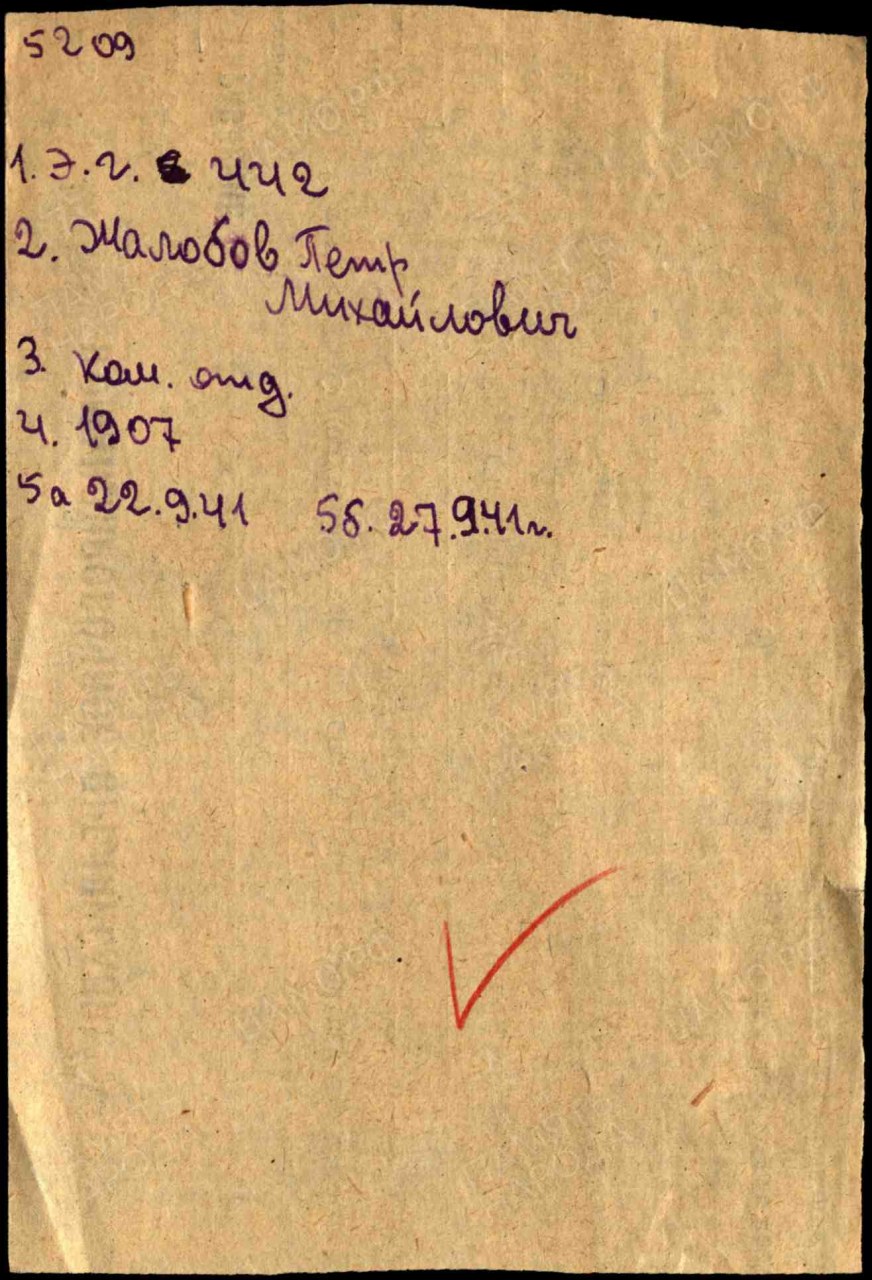 5209
1. Э.г. 442
2. Жалобов Петр
Михайлович
3. Ком. отд.
4. 1907
5а 22.9.41 5б. 27.9.41г.